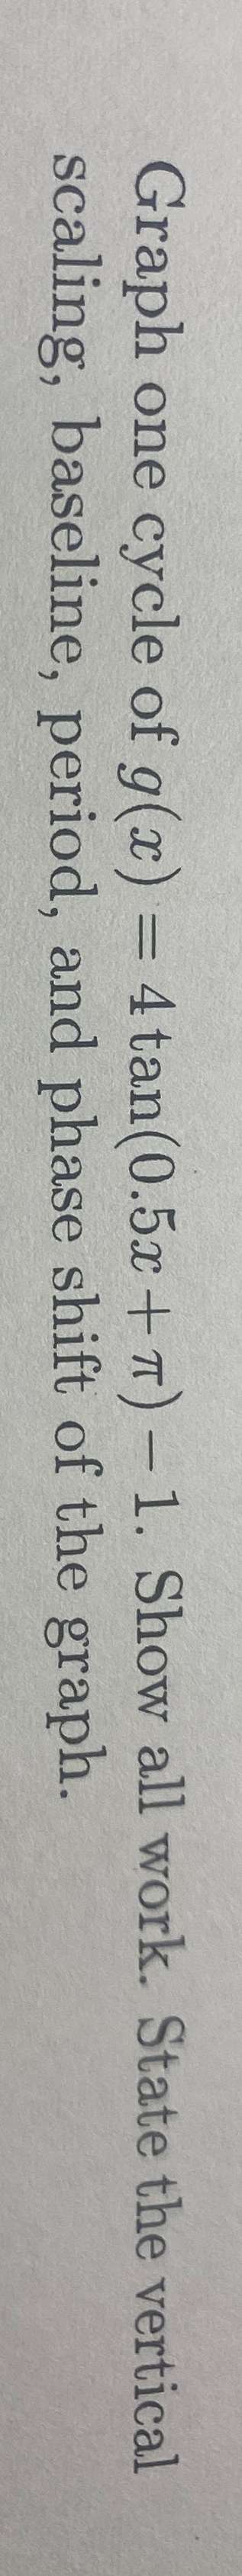 Graph one cycle of g(x) = 4 tan(0.5x + π) − 1. Show all work. State the vertical
scaling, baseline, period, and phase shift of the graph.